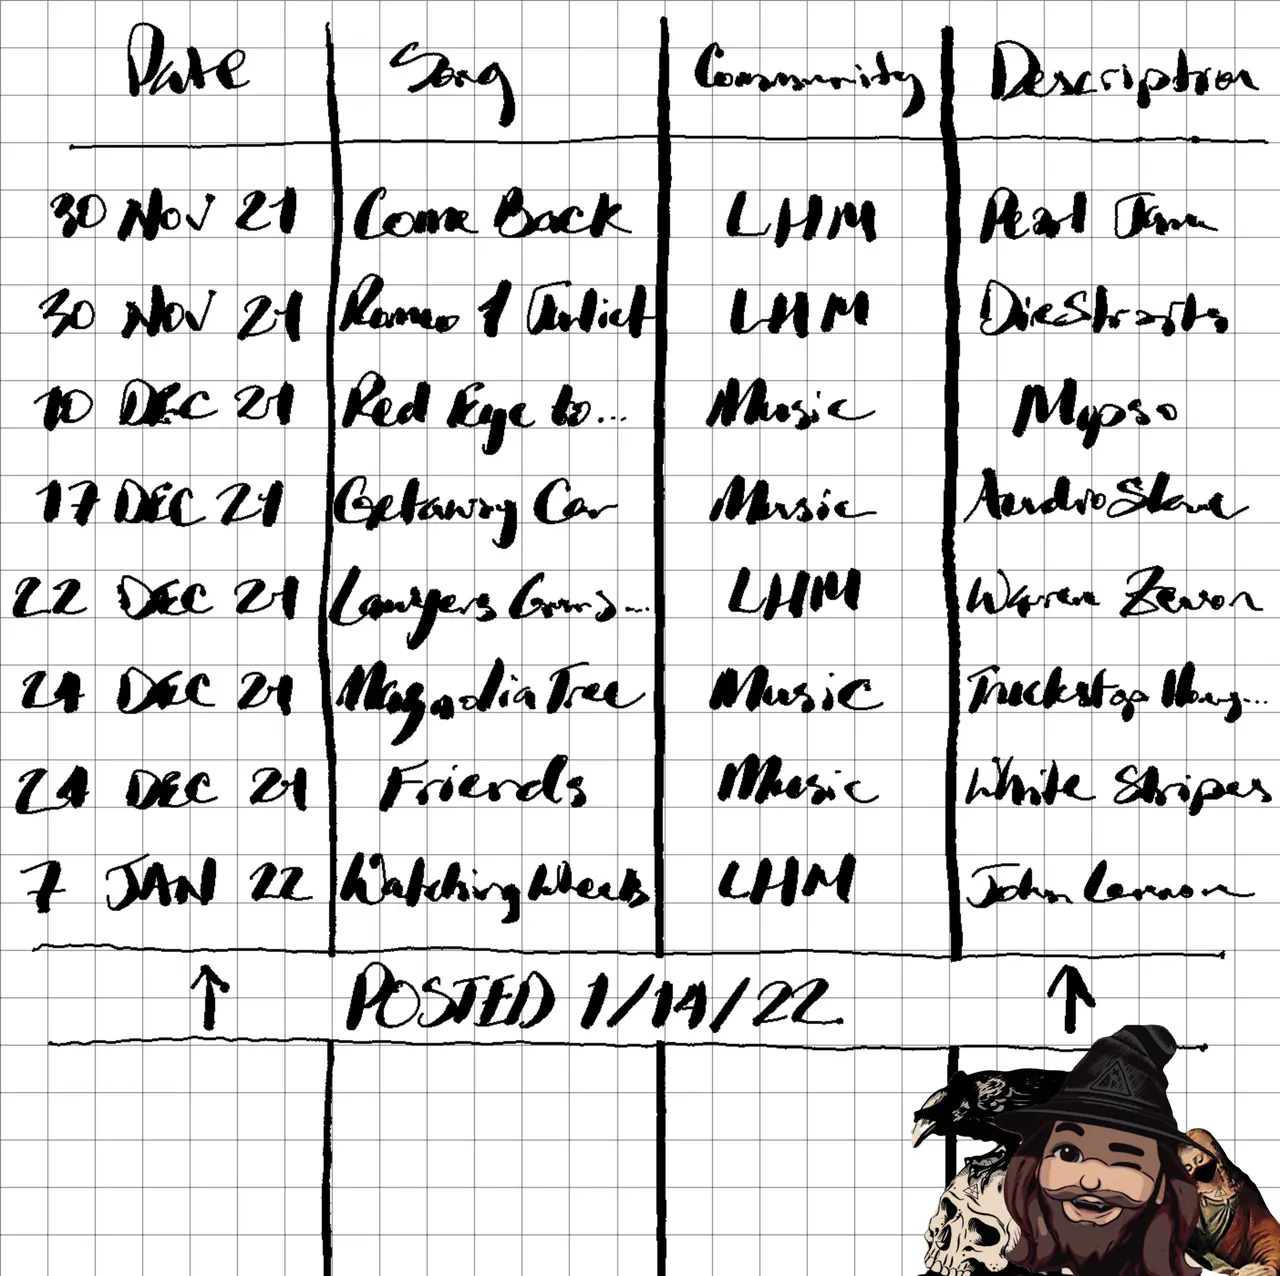 Date Song Community Description
30 Nov 21 Come Back LHM Pearl Jam
30 Nov 21 Romeo & Juliet LHM Die Straits
10 DEC 21 Red Eye to... Music Mipso
17 DEC 21 Getaway Car Music AudioSlave
22 DEC 21 Lawyers Guns... LHM Warren Zevon
24 DEC 21 Magnolia Tree Music Truckstop Hony...
24 DEC 21 Friends Music White Stripes
7 JAN 22 Watching Wheels LHM John Lennon
↑ POSTED 1/14/22 ↑